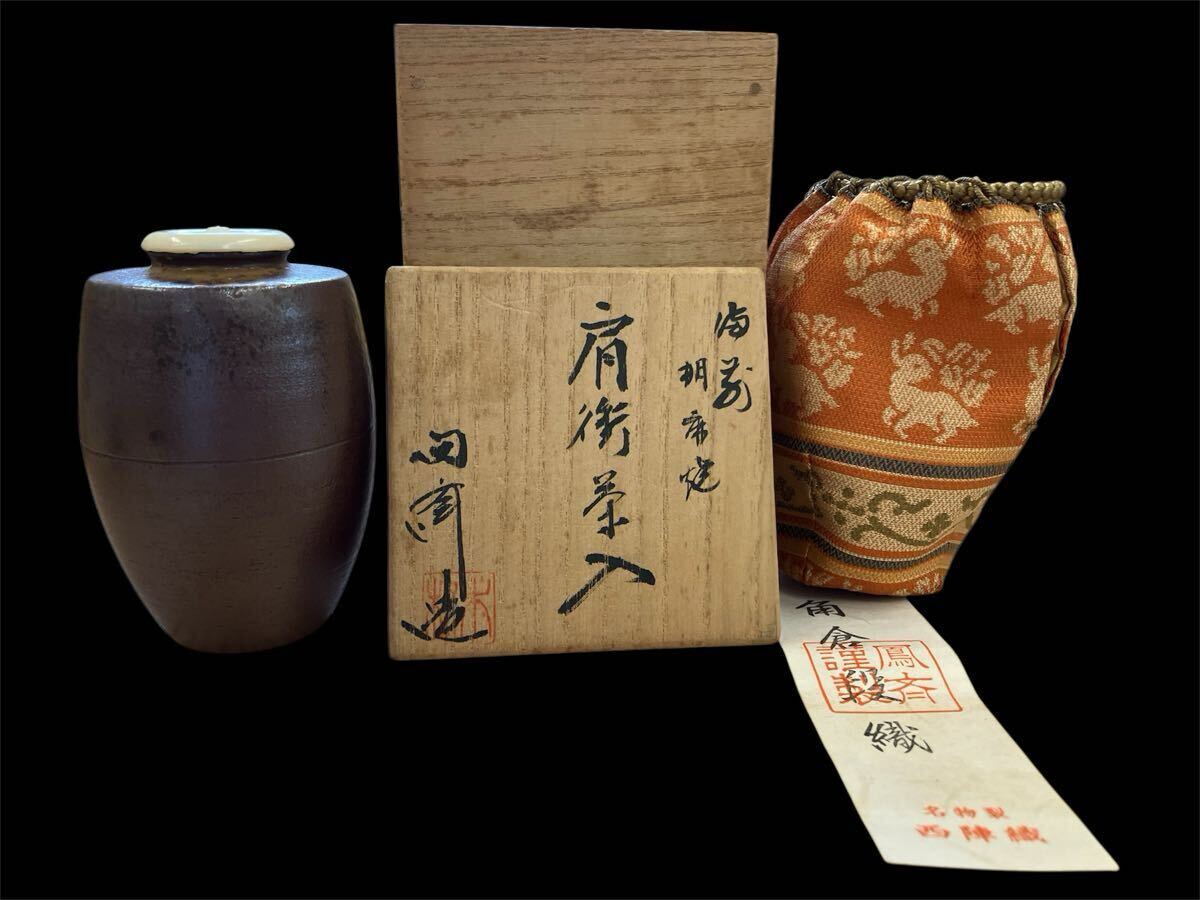 備前
胡麻焼
肩衝茶入
造
角倉段織
鳳斉
謹製
名物裂
西陣織